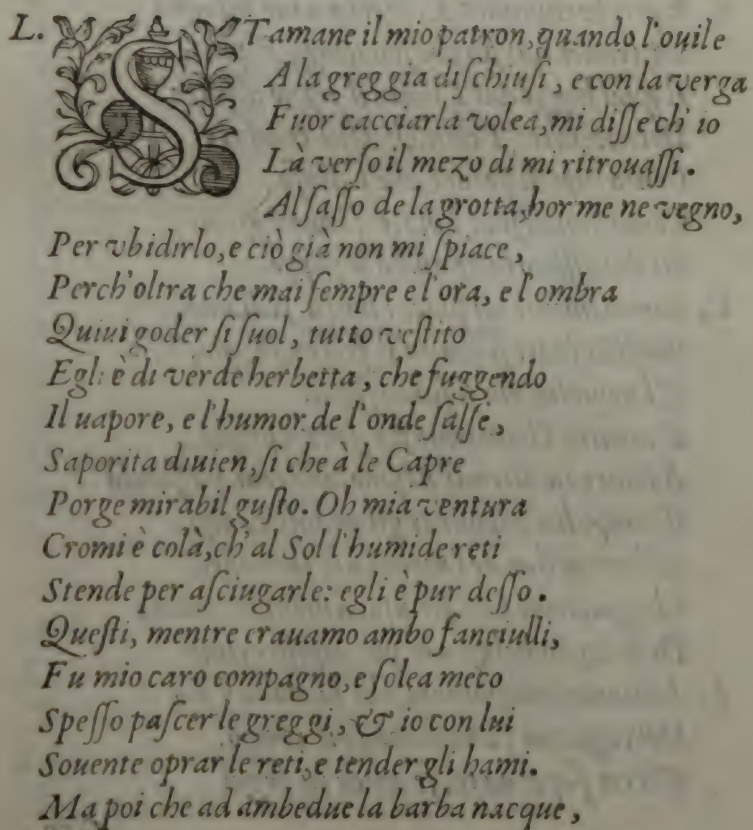 L. STamane il mio patron, quando l'ouile
A la greggia dischiusi, e con la verga
Fuor cacciarla volea, mi disse ch' io
Là verso il mezo di mi ritrouassi.
Al sasso de la grotta, hor me ne vegno,
Per vbidirlo, e ciò già non mi spiace,
Perch'oltra che mai sempre e l'ora, e l'ombra
Quiui goder si suol, tutto vestito
Egli è di verde herbetta, che fuggendo
Il uapore, e l'humor de l'onde salse,
Saporita diuien, si che à le Capre
Porge mirabil gusto. Oh mia ventura
Cromi è colà, ch'al Sol l'humide reti
Stende per asciugarle: egli è pur desso.
Questi, mentre erauamo ambo fanciulli,
Fu mio caro compagno, e solea meco
Spesso pascer le greggi, & io con lui
Souente oprar le reti, e tender gli hami.
Ma poi che ad ambedue la barba nacque,